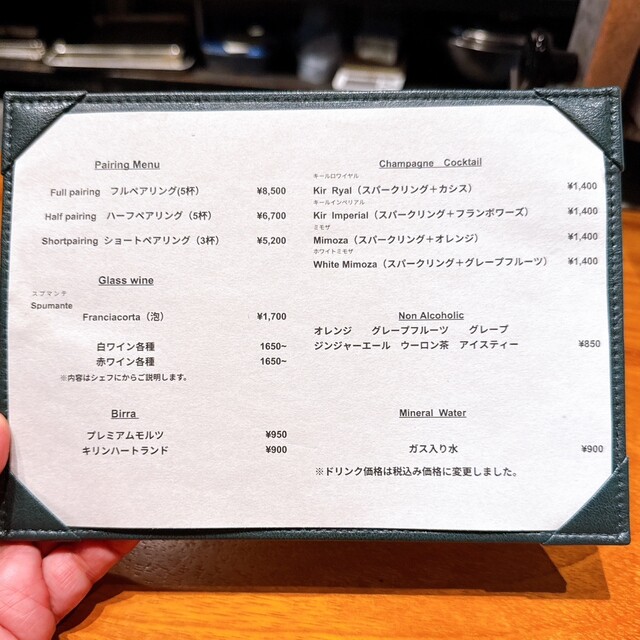 Pairing Menu
Full pairing フルペアリング(5杯) ¥8,500
Half pairing ハーフペアリング（5杯） ¥6,700
Shortpairing ショートペアリング（3杯） ¥5,200
Glass wine
スプマンテ
Spumante
Franciacorta（泡） ¥1,700
白ワイン各種 1650~
赤ワイン各種 1650~
※内容はシェフにからご説明します。
Birra
プレミアムモルツ ¥950
キリンハートランド ¥900
Champagne Cocktail
キールロワイヤル
Kir Ryal（スパークリング＋カシス） ¥1,400
キールインペリアル
Kir Imperial（スパークリング＋フランボワーズ） ¥1,400
ミモザ
Mimoza（スパークリング＋オレンジ） ¥1,400
ホワイトミモザ
White Mimoza（スパークリング＋グレープフルーツ） ¥1,400
Non Alcoholic
オレンジ グレープフルーツ グレープ
ジンジャーエール ウーロン茶 アイスティー ¥850
Mineral Water
ガス入り水 ¥900
※ドリンク価格は税込み価格に変更しました。